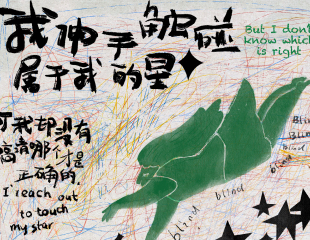 我伸手触碰
属于我的星
But I don't
know which
is right
可我却没有
搞清哪个才是
正确的
I'reach out
to touch
my star
Blin
Blin
blind
blind
blind
blind